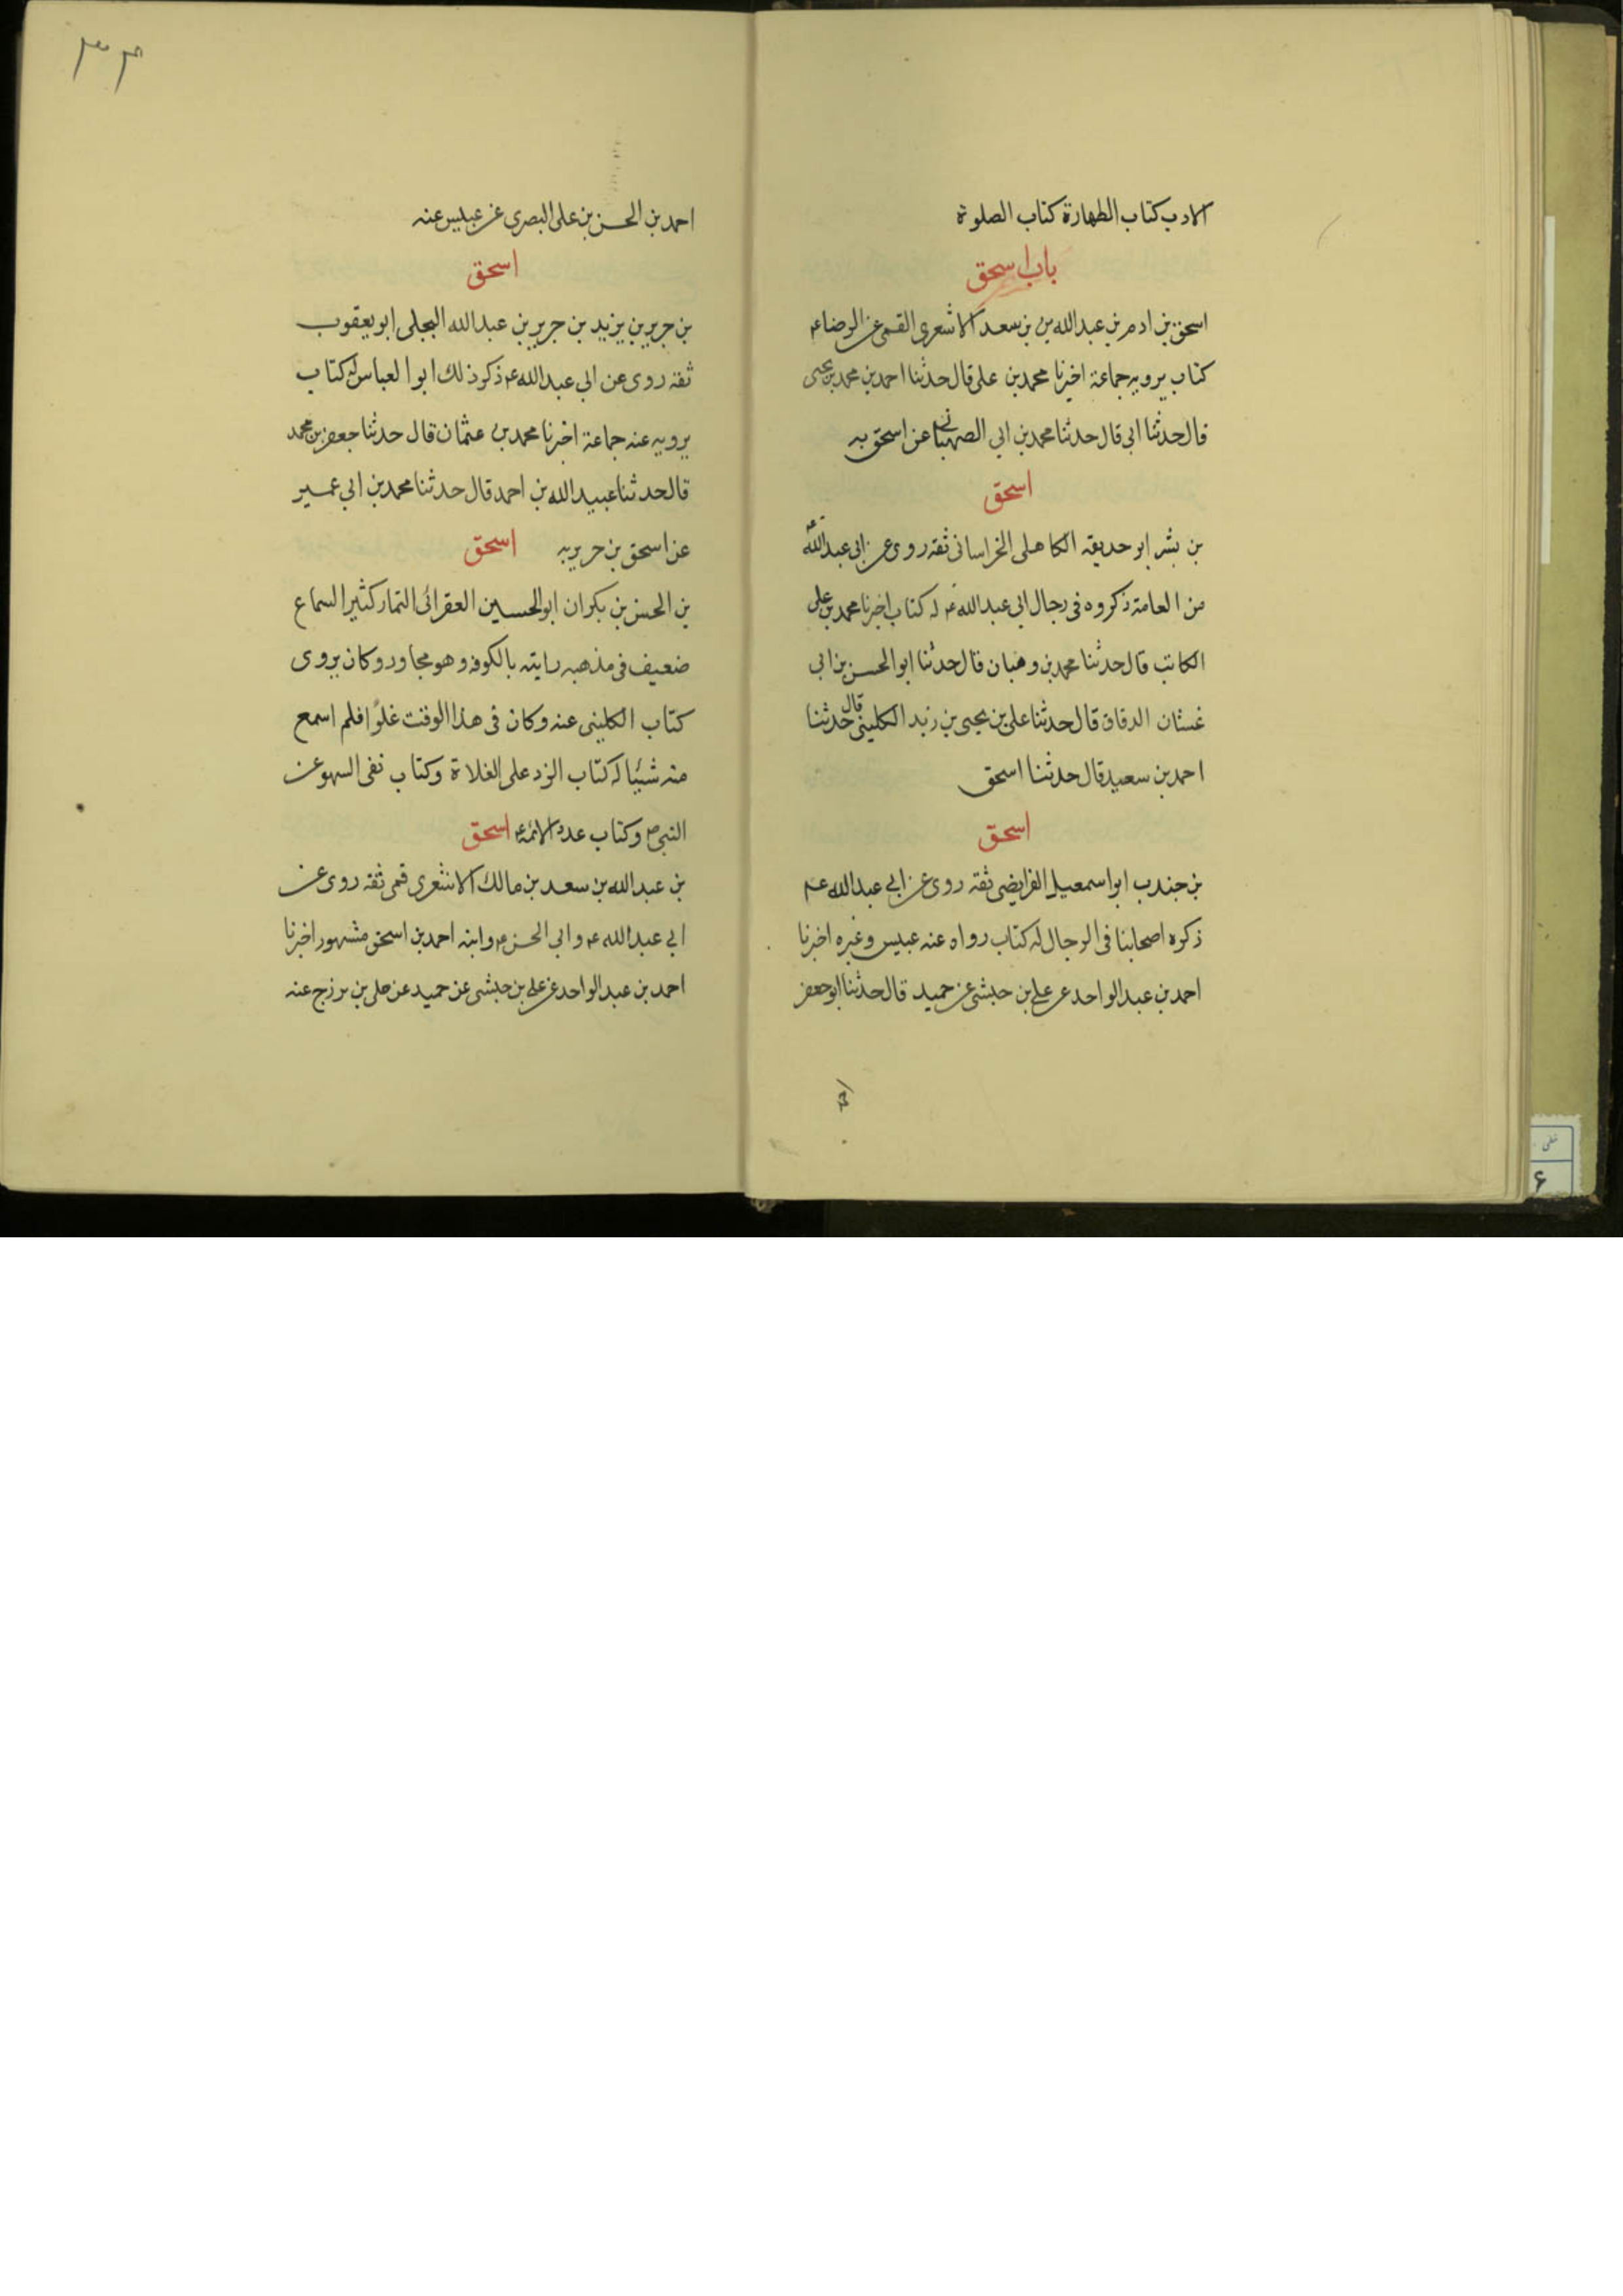 الادب كتاب الطهارة كتاب الصلوة
باب اسحق
اسحق بن ادم بن عبدالله بن بن سعد الاشعرى القمى عن الرضا عم
كتاب يرويه جماعة اخبرنا محمد بن على قال حدثنا احمد بن محمد بن يحيى
قال حدثنا ابى قال حدثنا محمد بن ابى الصهبانى عن اسحق به
اسحق
بن بشر ابو حديقه الكاهلى الخراسانى ثقه روى عن ابى عبدالله عم
من العامة ذكروه فى رجال ابى عبدالله عم له كتاب اخبرنا محمد بن على
الكاتب قال حدثنا محمد بن وهبان قال حدثنا ابوالحسن بن ابى
غسان الدقاق قال حدثنا على بن يحيى بن زيد الكلينى قال حدثنا
احمد بن سعيد قال حدثنا اسحق
اسحق
بن جندب ابو اسمعيل الفرايضى ثقه روى عن ابى عبدالله عم
ذكره اصحابنا فى الرجال له كتاب رواه عنه عبيس وغيره اخبرنا
احمد بن عبدالواحد عن على بن حبشى عن حميد قال حدثنا ابو جعفر
احمد بن الحسن بن على البصرى عن عبيس عنه
اسحق
بن جرير بن يزيد بن جرير بن عبدالله البجلى ابو يعقوب
ثقه روى عن ابى عبدالله عم ذكر ذلك ابوالعباس له كتاب
يرويه عنه جماعة اخبرنا محمد بن عثمان قال حدثنا جعفر بن محمد
قال حدثنا عبيدالله بن احمد قال حدثنا محمد بن ابى عمير
عن اسحق بن جرير به اسحق
بن الحسن بن بكران ابوالحسين العقرائى التمار كثير السماع
ضعيف فى مذهبه رايته بالكوفه وهو مجاور وكان يروى
كتاب الكلينى عنه وكان فى هذا الوقت غلوا فلم اسمع
منه شيئا له كتاب الرد على الغلاة وكتاب نفى السهو عن
النبى ص وكتاب عدد الائمه عم اسحق
بن عبدالله بن سعد بن مالك الاشعرى قمى ثقه روى عن
ابى عبدالله عم وابى الحسن عم وابنه احمد بن اسحق مشهور اخبرنا
احمد بن عبدالواحد عن على بن حبشى عن حميد عن على بن بزرج عنه